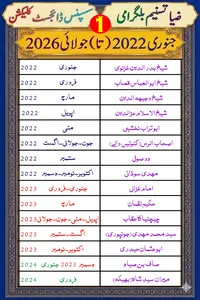 ضیا تسنیم بلگرامی 1 سسپنس ڈائجسٹ کلیکشن
جنوری 2022 (تا) جولائی 2026
شیخ بدرالدین غزنوی جنوری 2022
شیخ ابوالعباس قصاب فروری 2022
شیخ وجیہہ الدین مارچ 2022
شیخ الاسلام عزالدین اپریل 2022
ابو تراب نخشبی مئی 2022
اصحاب الرس (کنوئیں والے) جون-جولائی-اگست 2022
دد صول ستمبر 2022
مہدی سوڈانی اکتوبر-نومبر-دسمبر 2022
امام غزالی جنوری-فروری 2023
حکیم لقمان مارچ 2023
چیچنیا کا عقاب اپریل-مئی-جون-جولائی 2023
سید محمد مہدی (جونپوری) اگست-ستمبر 2023
ابو عثمان حیری اکتوبر-نومبر 2023
صاف بن صیاد دسمبر 2023 جنوری 2024
میراں سید شاہ بھیکھ فروری 2024